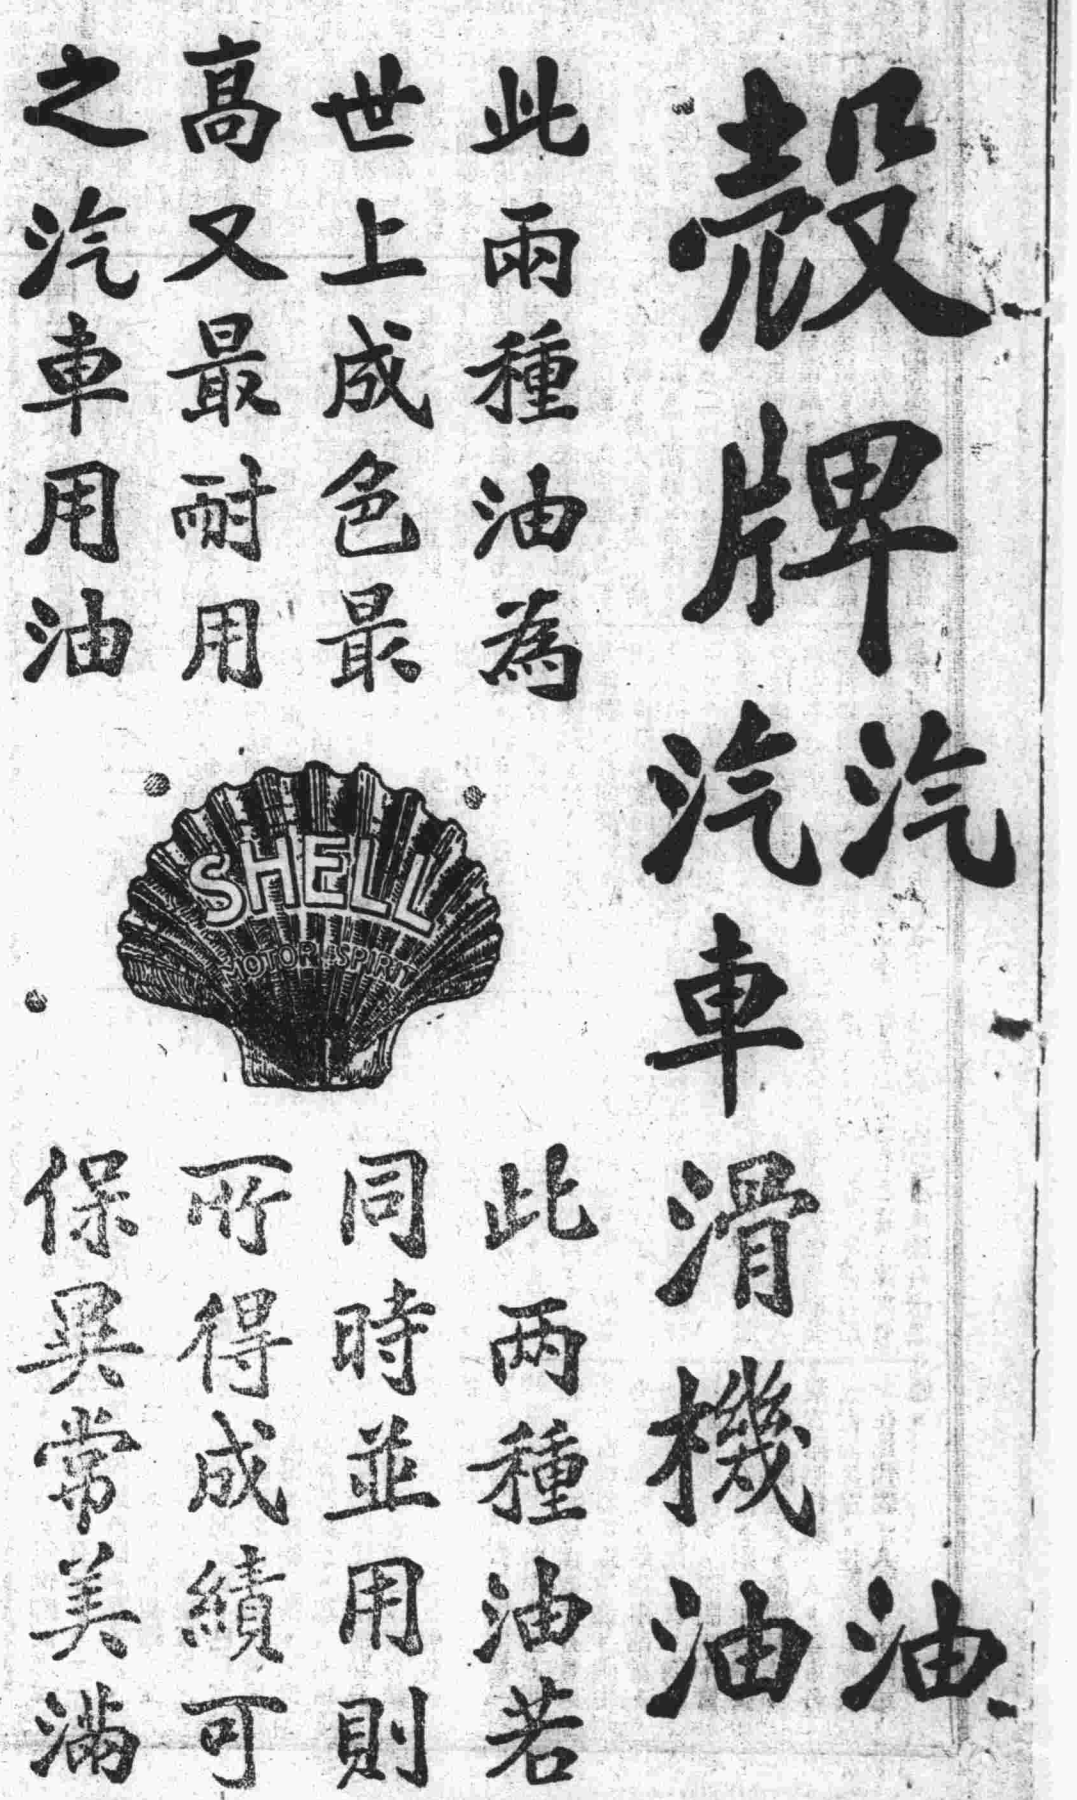 殼牌
汽油
汽車滑機油
此兩種油為
世上成色最
高又最耐用
之汽車用油
SHELL
MOTOR SPIRIT
此两種油若
同時並用則
所得成績可
保異常美滿